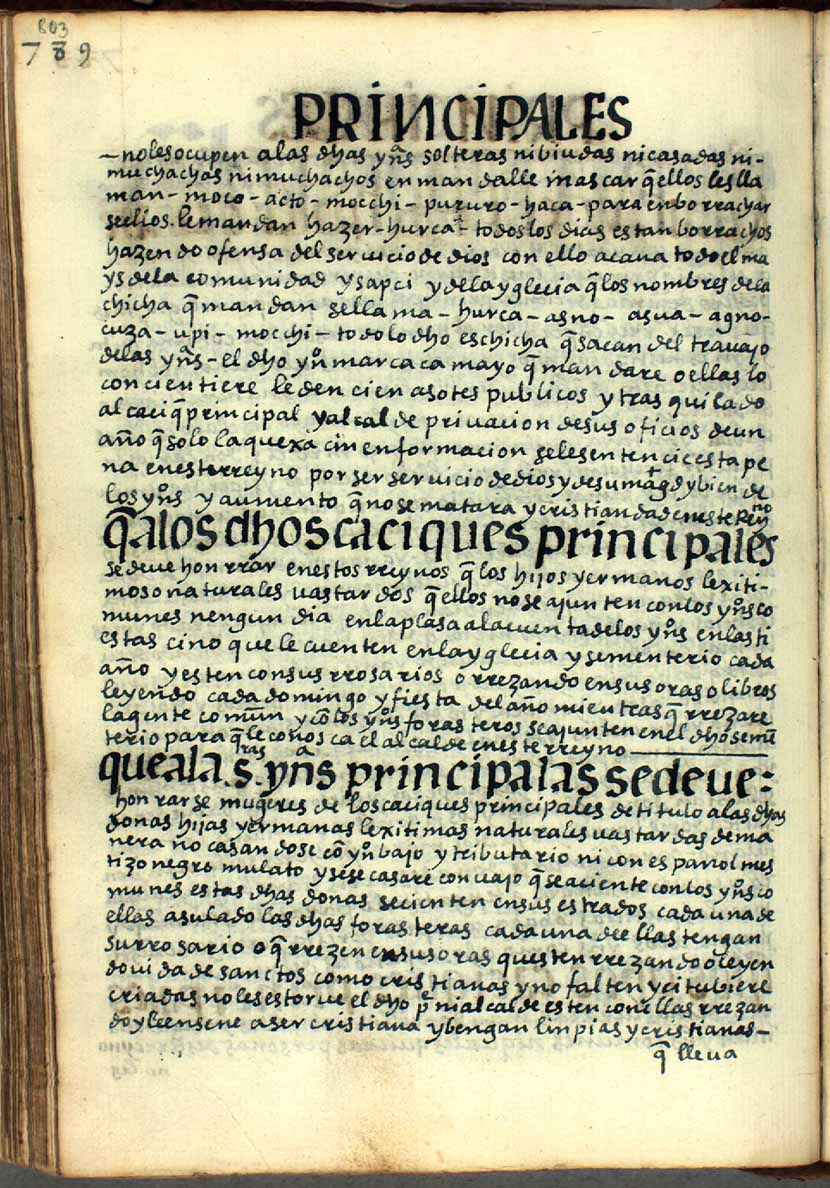 803
789
PRINCIPALES
– no les ocupen a las dhas yn̄s solteras ni biudas ni casadas ni-
muchachas ni muchachos en mandalle mascar q̄ ellos les lla
man – moco – acto – mocchi – pururo – haca – para enborrachar
se ellos. le mandan hazer – hurca – todos los dias estan borrachos
hazendo ofensa del seruicio de dios con ello acaua todo el ma
ys de la comunidad y sapci y de la yglecia q̄ los nombres de la
chicha q̄ mandan se llama – hurca – asno – asua – agno –
cuza – upi – mocchi – todo lo dho es chicha q̄ sacan del trauajo
de las yn̄s – el dho yn̄o marca camayo q̄ mandare o ellas lo
concientiere le den cien asotes publicos y trasquilado
al caciq̄ principal y alcalde priuacion de sus oficios de un
año q̄ solo la quexa cin enformacion se le sentencie esta pe
na en este rreyno por ser seruicio de dios y de su mag.d y bien de
los yn̄s y aumento q̄ no se matara y cristiandad en este rreyno
q̄ a los dhos caciques principales
se deue honrrar en estos rreynos q̄ los hijos y ermanos lexiti-
mos o naturales uastardos q̄ ellos no se ajunten con los yn̄s co
munes nengun dia en la plasa a la cuenta de los yn̄s en las fi
estas cino que le cuenten en la yglecia y sementerio cada
año y esten con sus rrosarios o rrezando en sus oras o libros
leyendo cada domingo y fiesta del año mientras q̄ rrezare
la gente comun y cō los yn̄s forasteros se ajunten en el dho seme
terio para q̄ le conosca el alcalde en este rreyno
que a la s.ras yn̄as principalas se deue:
honrarse mugeres de los caciques principales de titulo a las dhas
donas hijas y ermanas lexitimas naturales uastardas de ma
nera no casandose cō yn̄o bajo y tributario ni con español mes
tizo negro mulato y se se casare con uajo q̄ se aciente con los yn̄s co
munes estas dhas donas se cienten en sus estrados cada una de
ellas a su lado las dhas forasteras cada una dellas tengan
su rrosario o q̄ rrezen en sus oras questen rrezando o leyen
do uida de sanctos como cristianas y no falten y ci tubiere
criadas no les estorue el dho p.e ni alcalde esten con ellas rrezan
do y le ensene a ser cristiana y bengan linpias y cristianas –
q̄ lleua